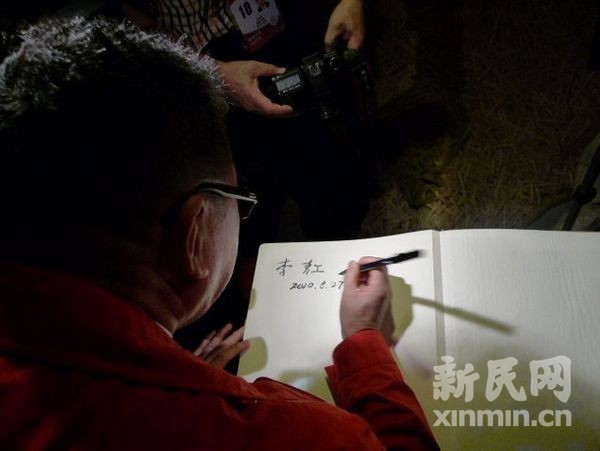 10
李
2010.8.27
新民网
xinmin.cn